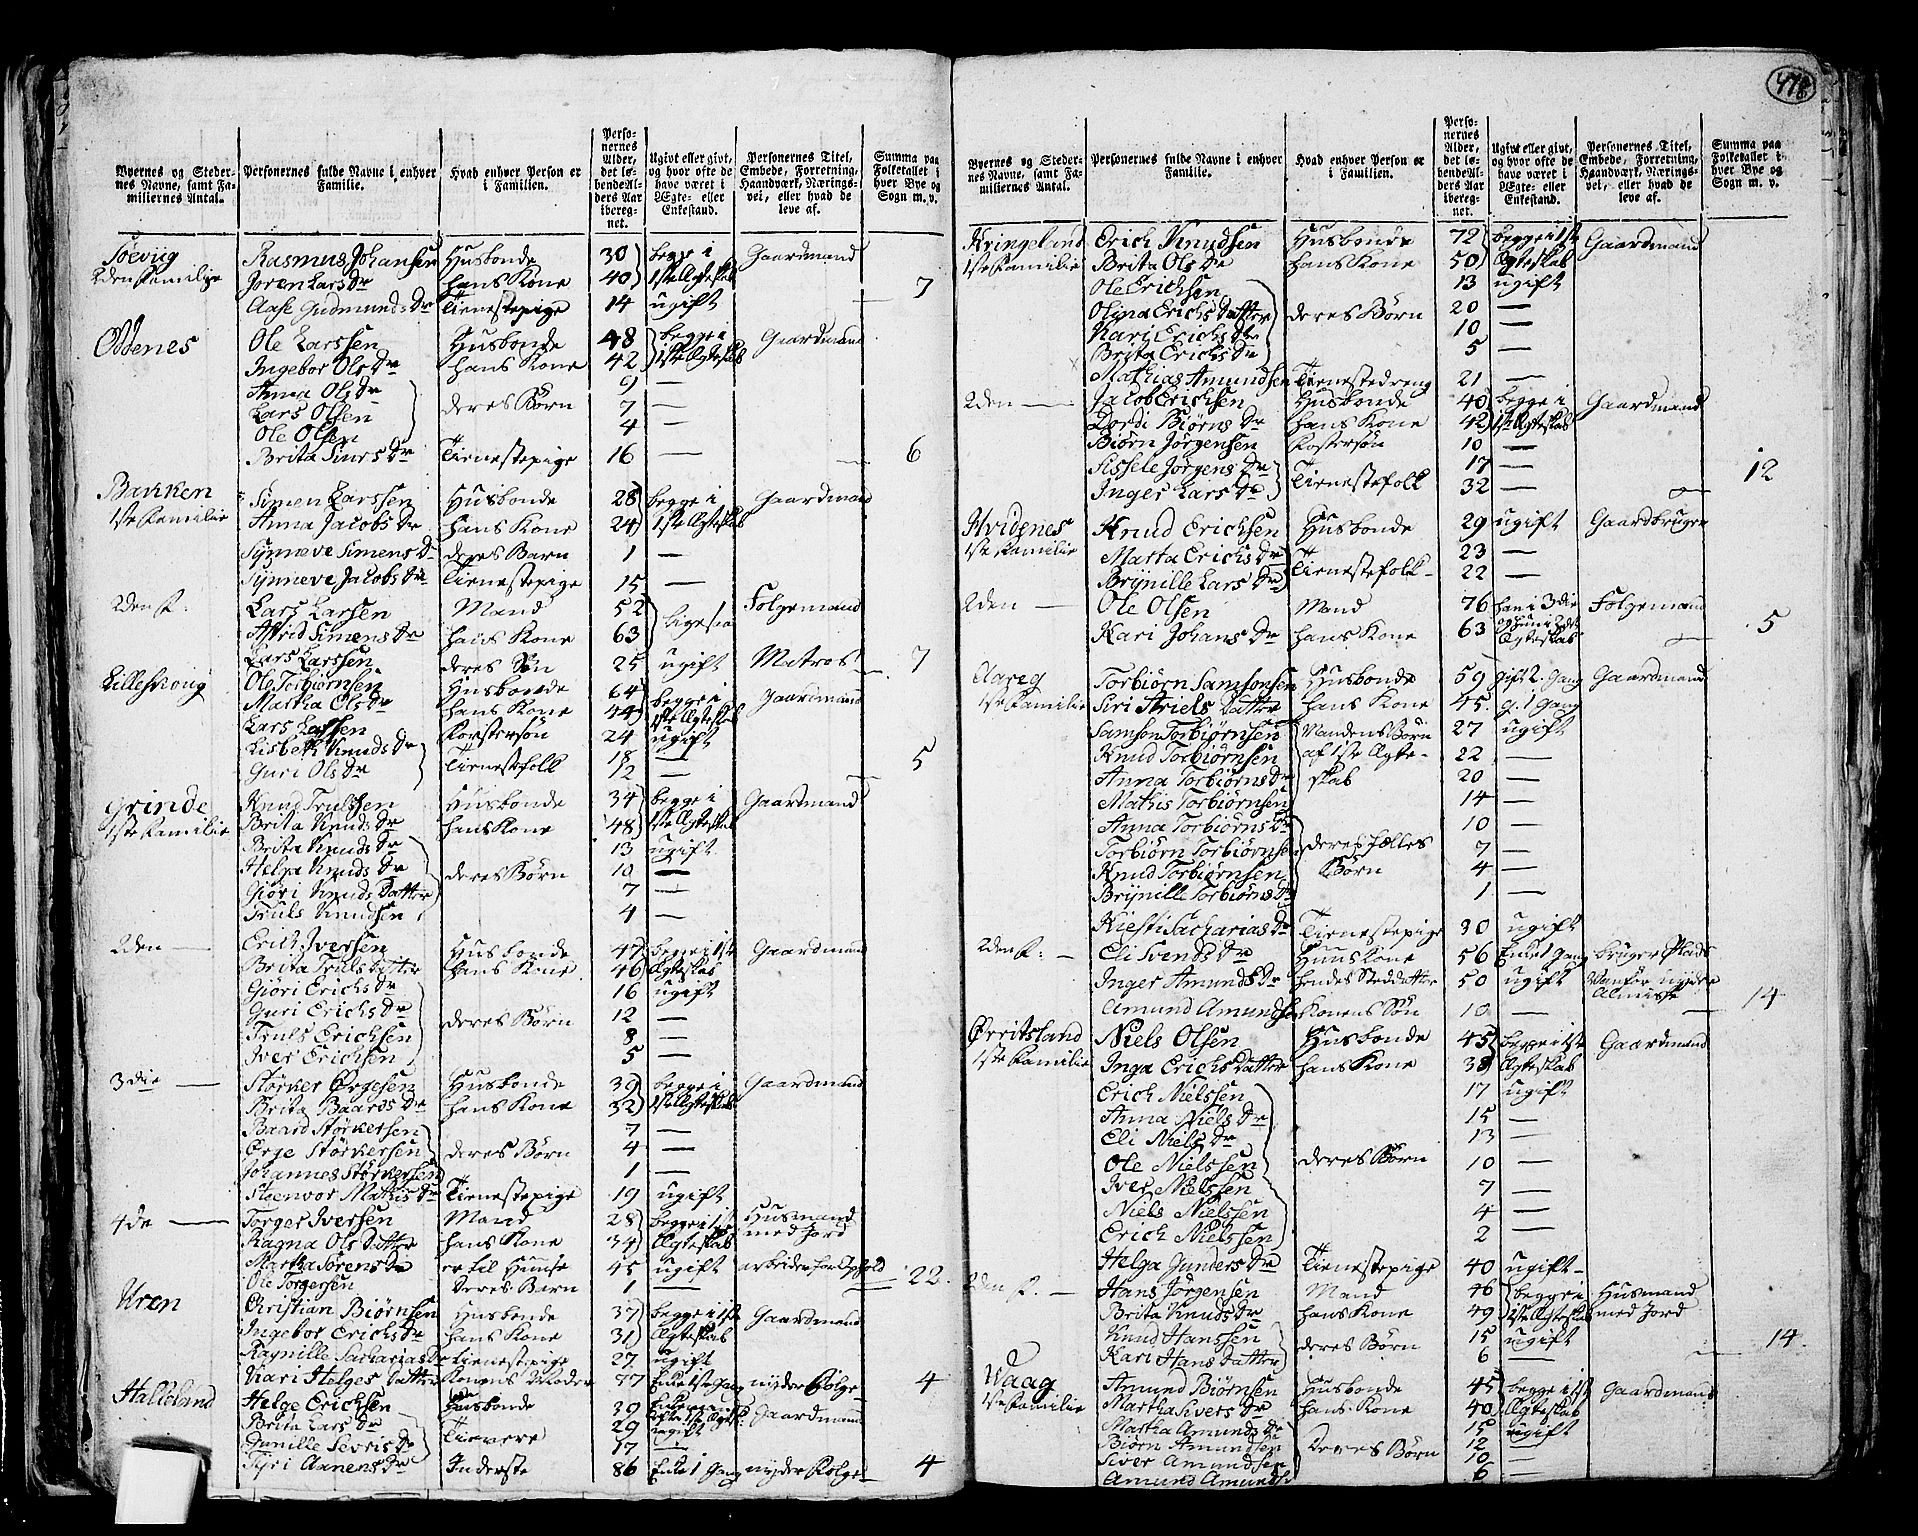 478
Byernes og Steder-
nes Navne, samt Fa-
miliernes Antal.
Personernes fulde Navne i enhver
Familie.
Hvad enhver Person er
i Familien.
Perso-
nernes
Alder,
det lø-
bendeAl-
ders Aar
iberegnet.
Ugivt eller givt,
og hvor ofte de
have været i
Ægte- eller
Enkestand.
Personernes Titel,
Embede, Forretning,
Haandværk, Nærings-
vei, eller hvad de
leve af.
Summa paa
Folketallet i
hver Bye og
Sogn m. v.
Søeviig Rasmus Johansen Husbonde 30 begge i Gaardmand
2den Familie Joren Lars Dr hans Kone 40 1ste Ægteskab
Aase Gudmunds Dr Tienestepige 14 ugift — 7
Odenes Ole Larssen Husbonde 48 begge i Gaardmand
Ingebor Ols Dr hans Kone 42 1ste Ægteskab
Anna Ols Dr 9 —
Lars Olsen deres Børn 7 —
Ole Olsen 4 —
Brita Siurs Dr Tienestepige 16 — 6
Bakken Simen Larssen Husbonde 28 begge i Gaardmand
1ste Familie Anna Jacobs Dr hans Kone 24 1ste Ægteskab
Synneve Simens D deres Barn 1 —
Synneve Jacobs Dr Tienestepige 15 —
2den F: Lars Larsen Mand 52 ligesaa Folgemand
Astrid Simens Dr hans Kone 63
Lars Larssen deres Søn 25 ugift Matros 7
Lilleskoug Ole Torbiørnsen Husbonde 64 begge i Gaardmand
Martha Ols Dr hans Kone 44 1ste Ægteskab
Lars Larssen Forstersøn 24 ugift
Lisbeth Knuds Dr Tienestefolk 18 —
Guri Ols Dr 12 — 5
Grinde Knud Trulssen Husbonde 34 begge i Gaardmand
1ste Familie Brita Knuds Dr hans Kone 48 1ste Ægteskab
Brita Knuds Dr 13 ugift
Helga Knuds Dr deres Børn 10 —
Giøri Knuds Datter 7 —
Truls Knudsen 4 —
2den — Erich Iversen Husbonde 47 begge i 1st Gaardmand
Brita Truls Datter hans Kone 46 Ægteskab
Giøri Erichs Dr 16 ugift
Guri Erichs Dr deres Børn 12 —
Truls Erichsen 8 —
Iver Erichsen 5 —
3die — Størker Ørgesen Husbonde 39 begge i Gaardmand
Brita Baards Dr hans Kone 32 1ste Ægteskab
Baard Størkersen 7 —
Ørge Størkersen deres Børn 4 —
Johannes Størkersen 1 —
Steenvor Mathis Dr Tienestepige 19 ugift
4de — Torger Iversen Mand 28 begge i 1st Husmand
Ragna Ols Datter hans Kone 34 Ægteskab med Jord
Martha Sørens Dr er til Huuse 45 ugift arbeider for Ophold
Ole Torgersen Deres Barn 1 — 22.
Uren Christian Biørnsen Husbonde 37 begge i 1ste Gaardmand
Ingebor Erichs Dr hans Kone 31 Ægteskab
Ragnille Sacharias Dr tienestepige 27 ugift
Kari Helges Datter Konens Moder 77 Enke 1ste Gang nyder Folge 4
Halleland Helge Erichsen Husbonde 39 Enkemand efter 1ste Ægtesk: Gaardmand
Brita Lars Dr Tienere 29 ugift
Gunille Sevris Dr 17 —
Tyri Aanens Dr Inderste 86 Enke 1 Gang nyder Folge 4
Byernes og Steder-
nes Navne, samt Fa-
miliernes Antal.
Personernes fulde Navne i enhver
Familie.
Hvad enhver Person er
i Familien.
Perso-
nernes
Alder,
det lø-
bendeAl-
ders Aar
iberegnet.
Ugivt eller givt,
og hvor ofte de
have været i
Ægte- eller
Enkestand.
Personernes Titel,
Embede, Forretning,
Haandværk, Nærings-
vei, eller hvad de
leve af.
Summa paa
Folketallet i
hver Bye og
Sogn m. v.
Kringeland Erich Knudsen Husbonde 72 begge i 1ste Gaardmand
1ste Familie Brita Ols Dr hans Kone 50 Ægteskab
Ole Erichsen 13 ugift
Olina Erichs Datter deres Børn 20 —
Kari Erichs Dr 10 —
Brita Erichs Dr 5 —
Mathias Amundsen Tienestedreng 21 —
2den — Jacob Erichsen Husbonde 40 begge i Gaardmand
Dordi Biørns Dr hans Kone 42 1ste Ægteskab
Biørn Jørgensen Fostersøn 10 —
Sissele Jørgens Dr Tienestefolk 17 — 12
Inger Lars Dr 32 —
Hvidenes Knud Erichsen Husbonde 29 ugift Gaardbruger
1ste Familie Marta Erichs Dr Tienestefolk 23 —
Brynille Lars Dr 22 —
2den — Ole Olsen Mand 76 han i 3die Folgemand
Kari Johans Dr hans Kone 63 og hun i 2det Ægteskab 5
Aarig Torbiørn Samsonsen Husbonde 59 gift 2. Gang Gaardmand
1ste Familie Siri Ariels Datter hans Kone 45. g. 1 Gang
Samson Torbiørnsen Mandens Børn 27 ugift
Knud Torbiørnsen af 1ste Ægte- 22 —
Anna Torbiørns Dr skab 20 —
Mathis Torbiørnsen 14 —
Anna Torbiørns Dr 10 —
Torbiørn Torbiørnsen deres fælles 7 —
Knud Torbiørnsen Børn 4 —
Brynille Torbiørns D 1 —
Kiersti Sacharias Dr Tienestepige 30 ugift
2den F: — Eli Svends Dr Huuskone 56 Enke 1 Gang bruger Plads
Inger Amunds Dr hendes Steddatter 50 ugift Vanfør, nyder Almisse
Amund Amundsen Konens Søn 10 — 14
Ørritsland Niels Olsen Husbonde 45 begge i 1ste Gaardmand
1ste Familie Inga Erichs Datter hans Kone 38 Ægteskab
Erich Nielssen 17 ugift
Anna Niels Dr 15 —
Eli Niels Dr 13 —
Ole Nielssen deres Børn 10 —
Iver Nielssen 7 —
Niels Nielssen 4 —
Erich Nielssen 2 —
Helga Gunders Dr Tienestepige 40 ugift
2den F. — Hans Jørgensen Mand 46 begge i Husmand
Brita Knuds Dr hans Kone 49 1ste Ægteskab med Jord
Knud Hanssen deres Børn 15 ugift
Kari Hans Datter 6 — 14.
Waag Amund Biørnsen Husbonde 45 begge i 1st Gaardmand
1ste Familie Martha Sivers Dr hans Kone 40 Ægteskab
Martha Amunds Dr 15 ugift
Biørn Amundsen Deres Børn 12 —
Siver Amundsen 10 —
Amund Amunds 6 —